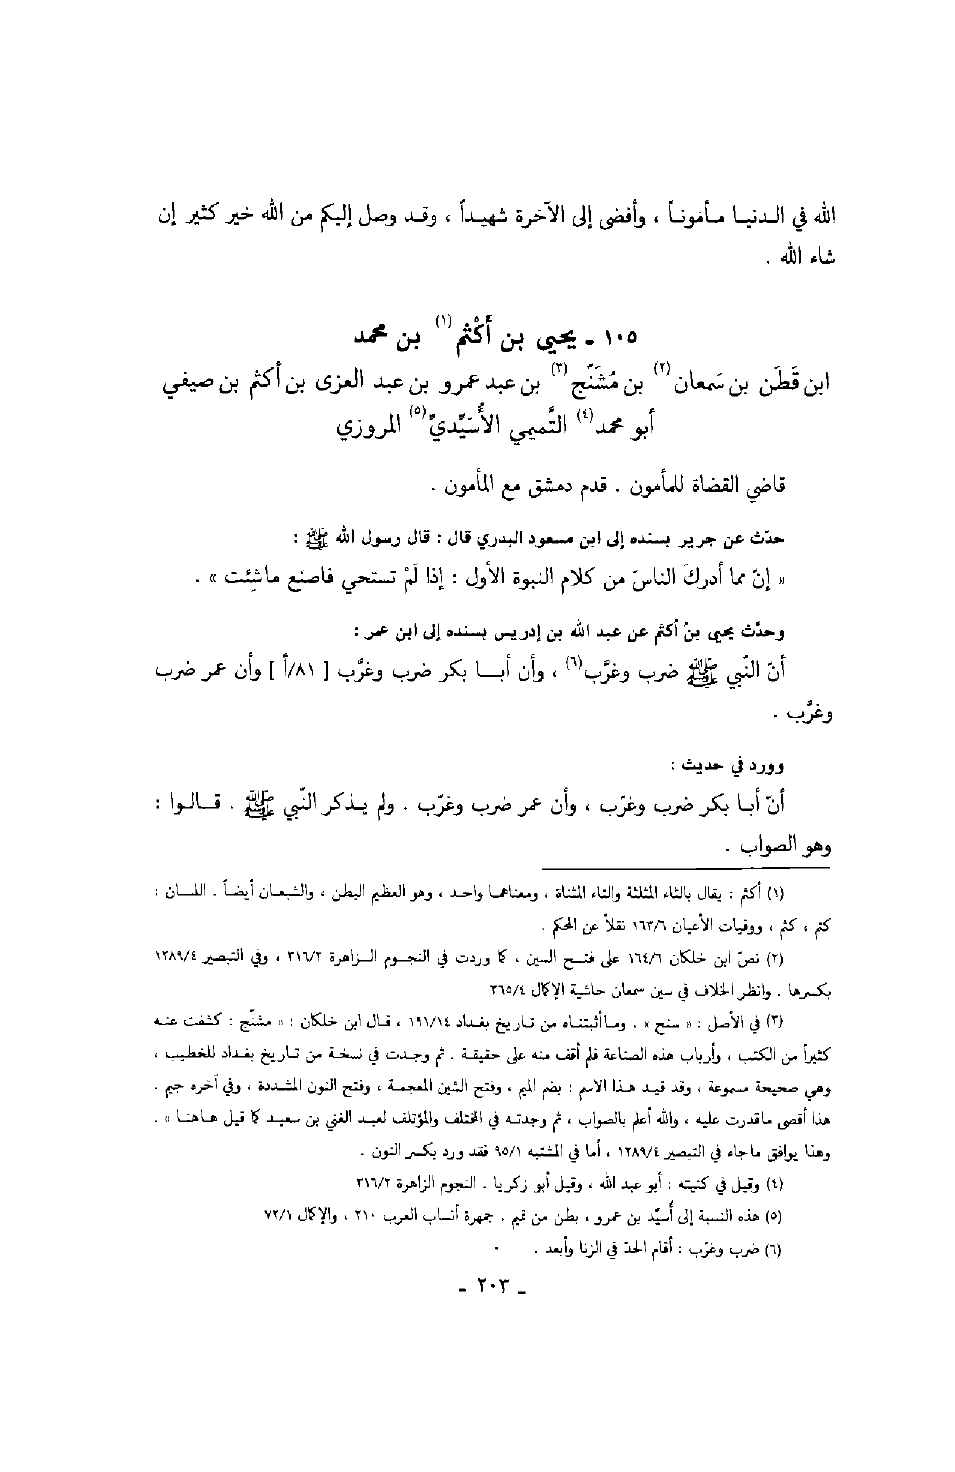 الله في الدنيا مأموناً ، وأفضى إلى الآخرة شهيداً ، وقد وصل إليكم من الله خير كثير إن
شاء الله .
١٠٥ ـ يحيى بن أَكْثم(١) بن محمد
ابن قَطَن بن سَمعان(٢) بن مُشَنَّج(٣) بن عبد عمرو بن عبد العزى بن أكثم بن صيفي
أبو محمد(٤) التَّميمي الأُسَيِّديّ(٥) المروزي
قاضي القضاة للمأمون . قدم دمشق مع المأمون .
حدّث عن جرير بسنده إلى ابن مسعود البدري قال : قال رسول الله ﷺ :
« إنّ مما أدركَ الناسَ من كلام النبوة الأول : إذا لَمْ تستحي فاصنع ماشِئت » .
وحدّث يحيى بنُ أكثم عن عبد الله بن إدريس بسنده إلى ابن عمر :
أنّ النّبي ﷺ ضرب وغرَّب(٦) ، وأن أبا بكر ضرب وغرَّب [ ٨١/أ ] وأن عمر ضرب
وغرَّب .
وورد في حديث :
أنّ أبا بكر ضرب وغرّب ، وأن عمر ضرب وغرّب . ولم يذكر النّبي ﷺ . قالوا :
وهو الصواب .
(١) أكثم : يقال بالثاء المثلثة والتاء المثناة ، ومعناهما واحد ، وهو العظيم البطن ، والشبعان أيضاً . اللسان :
كتم ، كثم ، ووفيات الأعيان ١٦٣/٦ نقلاً عن المحكم .
(٢) نصّ ابن خلكان ١٦٤/٦ على فتح السين ، كما وردت في النجوم الزاهرة ٣١٦/٢ ، وفي التبصير ١٢٨٩/٤
بكسرها . وانظر الخلاف في سين سمعان حاشية الإكمال ٣٦٥/٤
(٣) في الأصل : « سنح » . وماأثبتناه من تاريخ بغداد ١٩١/١٤ ، قال ابن خلكان : « مشنّج : كشفت عنه
كثيراً من الكتب ، وأرباب هذه الصناعة فلم أقف منه على حقيقة . ثم وجدت في نسخة من تاريخ بغداد للخطيب ،
وهي صحيحة مسموعة ، وقد قيد هذا الاسم : بضم الميم ، وفتح الشين المعجمة ، وفتح النون المشددة ، وفي آخره جيم .
هذا أقصى ماقدرت عليه ، والله أعلم بالصواب ، ثم وجدته في المختلف والمؤتلف لعبد الغني بن سعيد كما قيل هاهنا » .
وهذا يوافق ماجاء في التبصير ١٢٨٩/٤ ، أما في المشتبه ٩٥/١ فقد ورد بكسر النون .
(٤) وقيل في كنيته : أبو عبد الله ، وقيل أبو زكريا . النجوم الزاهرة ٣١٦/٢
(٥) هذه النسبة إلى أُسيِّد بن عمرو ، بطن من تميم . جمهرة أنساب العرب ٢١٠ ، والإكمال ٧٢/١
(٦) ضرب وغرّب : أقام الحدّ في الزنا وأبعد .
ـ ٢٠٣ ـ